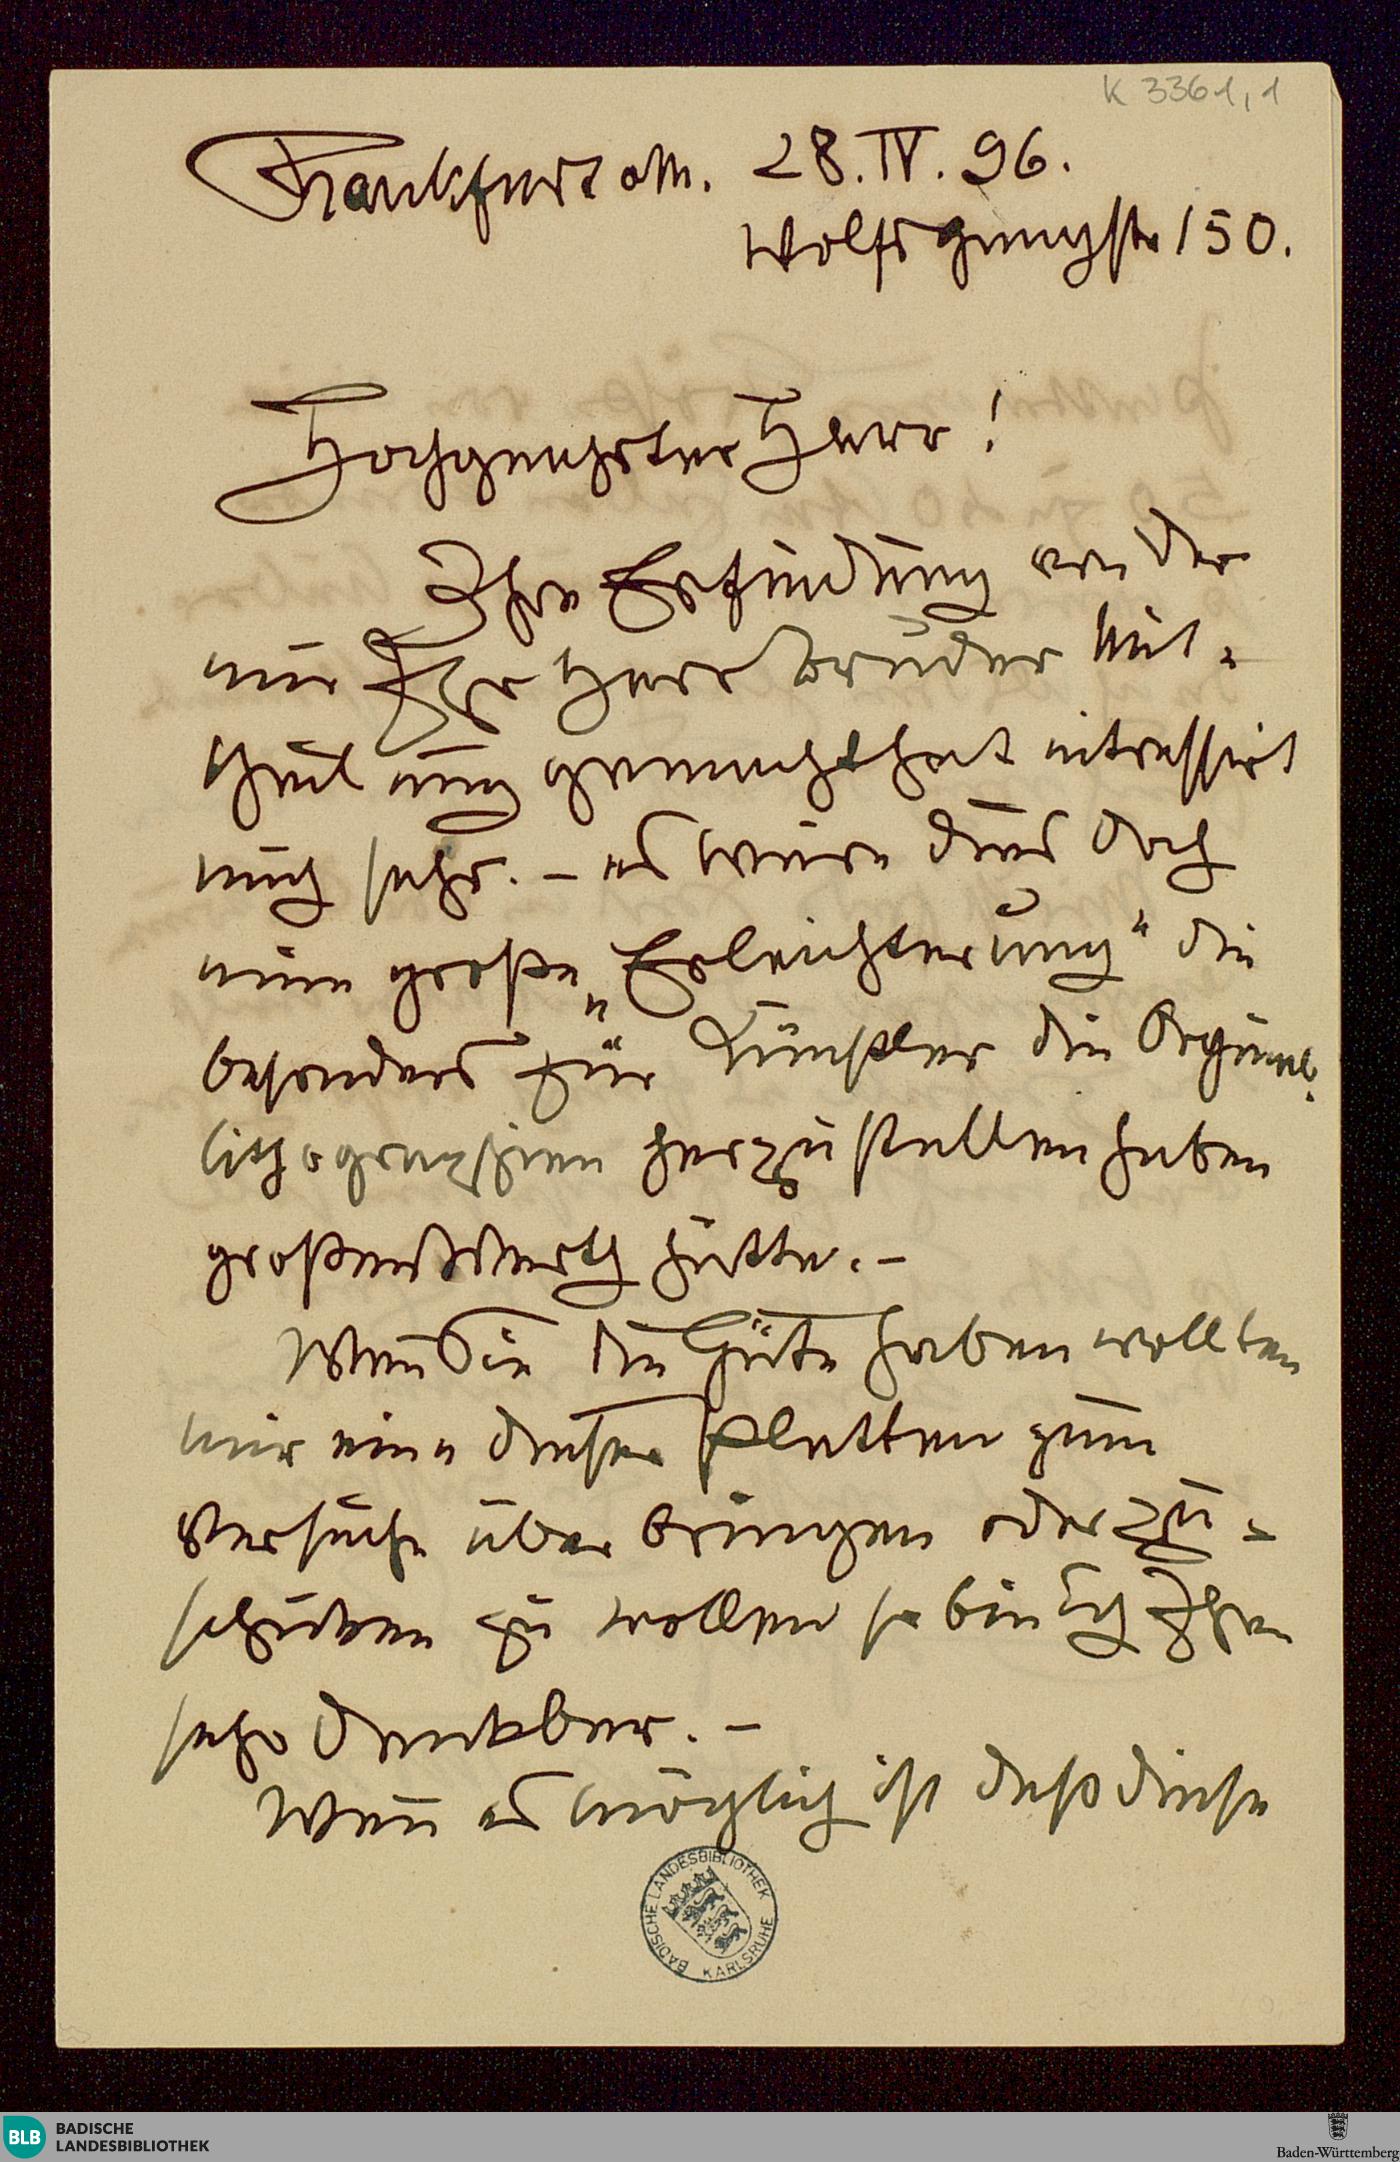 K 3361,1
Frankfurt aM. 28. IV. 96.
Wolfsgangstr 150.
Hochgeehrter Herr!
Ihre Erfindung von der
mir Ihr Herr Bruder Mit-
theilung gemacht hat intressirt
mich sehr. – es wäre dies doch
eine große „Erleichterung“ die
besonders für Künstler die Orginal-
lithographien herzustellen haben
großen Werth hätte. –
Wen̄ Sie die Güte haben wollten
mir eine dieser Platten zum
Versuche überbringen oder zu-
schicken zu wollen so bin Ich Ihnen
sehr dankbar. –
Wen̄ es möglich ist daß diese
BADISCHE LANDESBIBLIOTHEK KARLSRUHE
BLB BADISCHE
LANDESBIBLIOTHEK
Baden-Württemberg